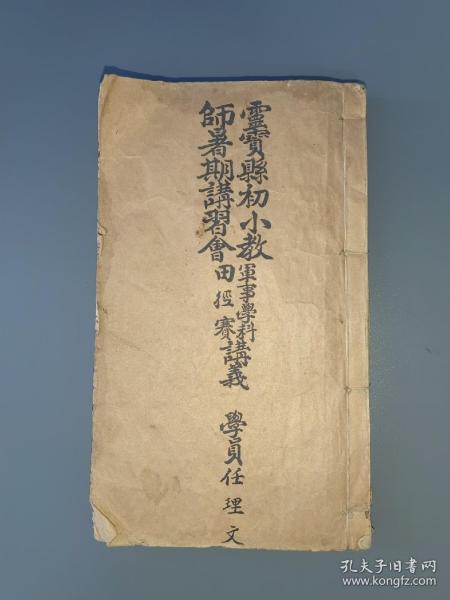 靈寶縣初小教
師暑期講習會
軍事學科
田徑賽
講義
學員任理文
孔夫子旧书网
www.kongfz.com